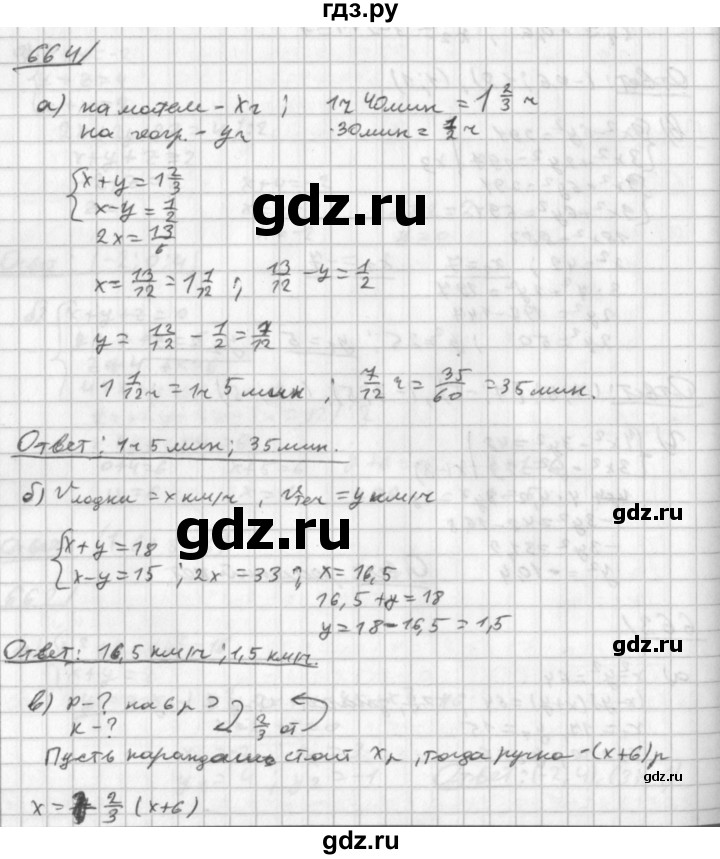 гдз.ру
664/
а) на матем – x ч ; 1ч 40мин = 1 2/3 ч
на геогр. – y ч 30мин = 1/2 ч
{ x + y = 1 2/3
x – y = 1/2
2x = 13/6
x = 13/12 = 1 1/12 ; 13/12 – y = 1/2
y = 13/12 – 1/2 = 7/12
1 1/12 ч = 1ч 5мин ; 7/12 ч = 35/60 = 35мин.
gdz.ru
Ответ: 1ч 5мин; 35мин.
б) Vлодки = x км/ч , Vтеч = y км/ч
gdz.ru
{ x + y = 18
x – y = 15 ; 2x = 33 ; x = 16,5
gdz.ru
16,5 + y = 18
y = 18 – 16,5 = 1,5
Ответ: 16,5 км/ч ; 1,5 км/ч.
gdz.ru
в) р – ? на 6 р >
к – ? 2/3 от
Пусть карандаш стоит x р, тогда ручка – (x+6) р
gdz.ru
x = 2/3 (x+6)
gdz.ru